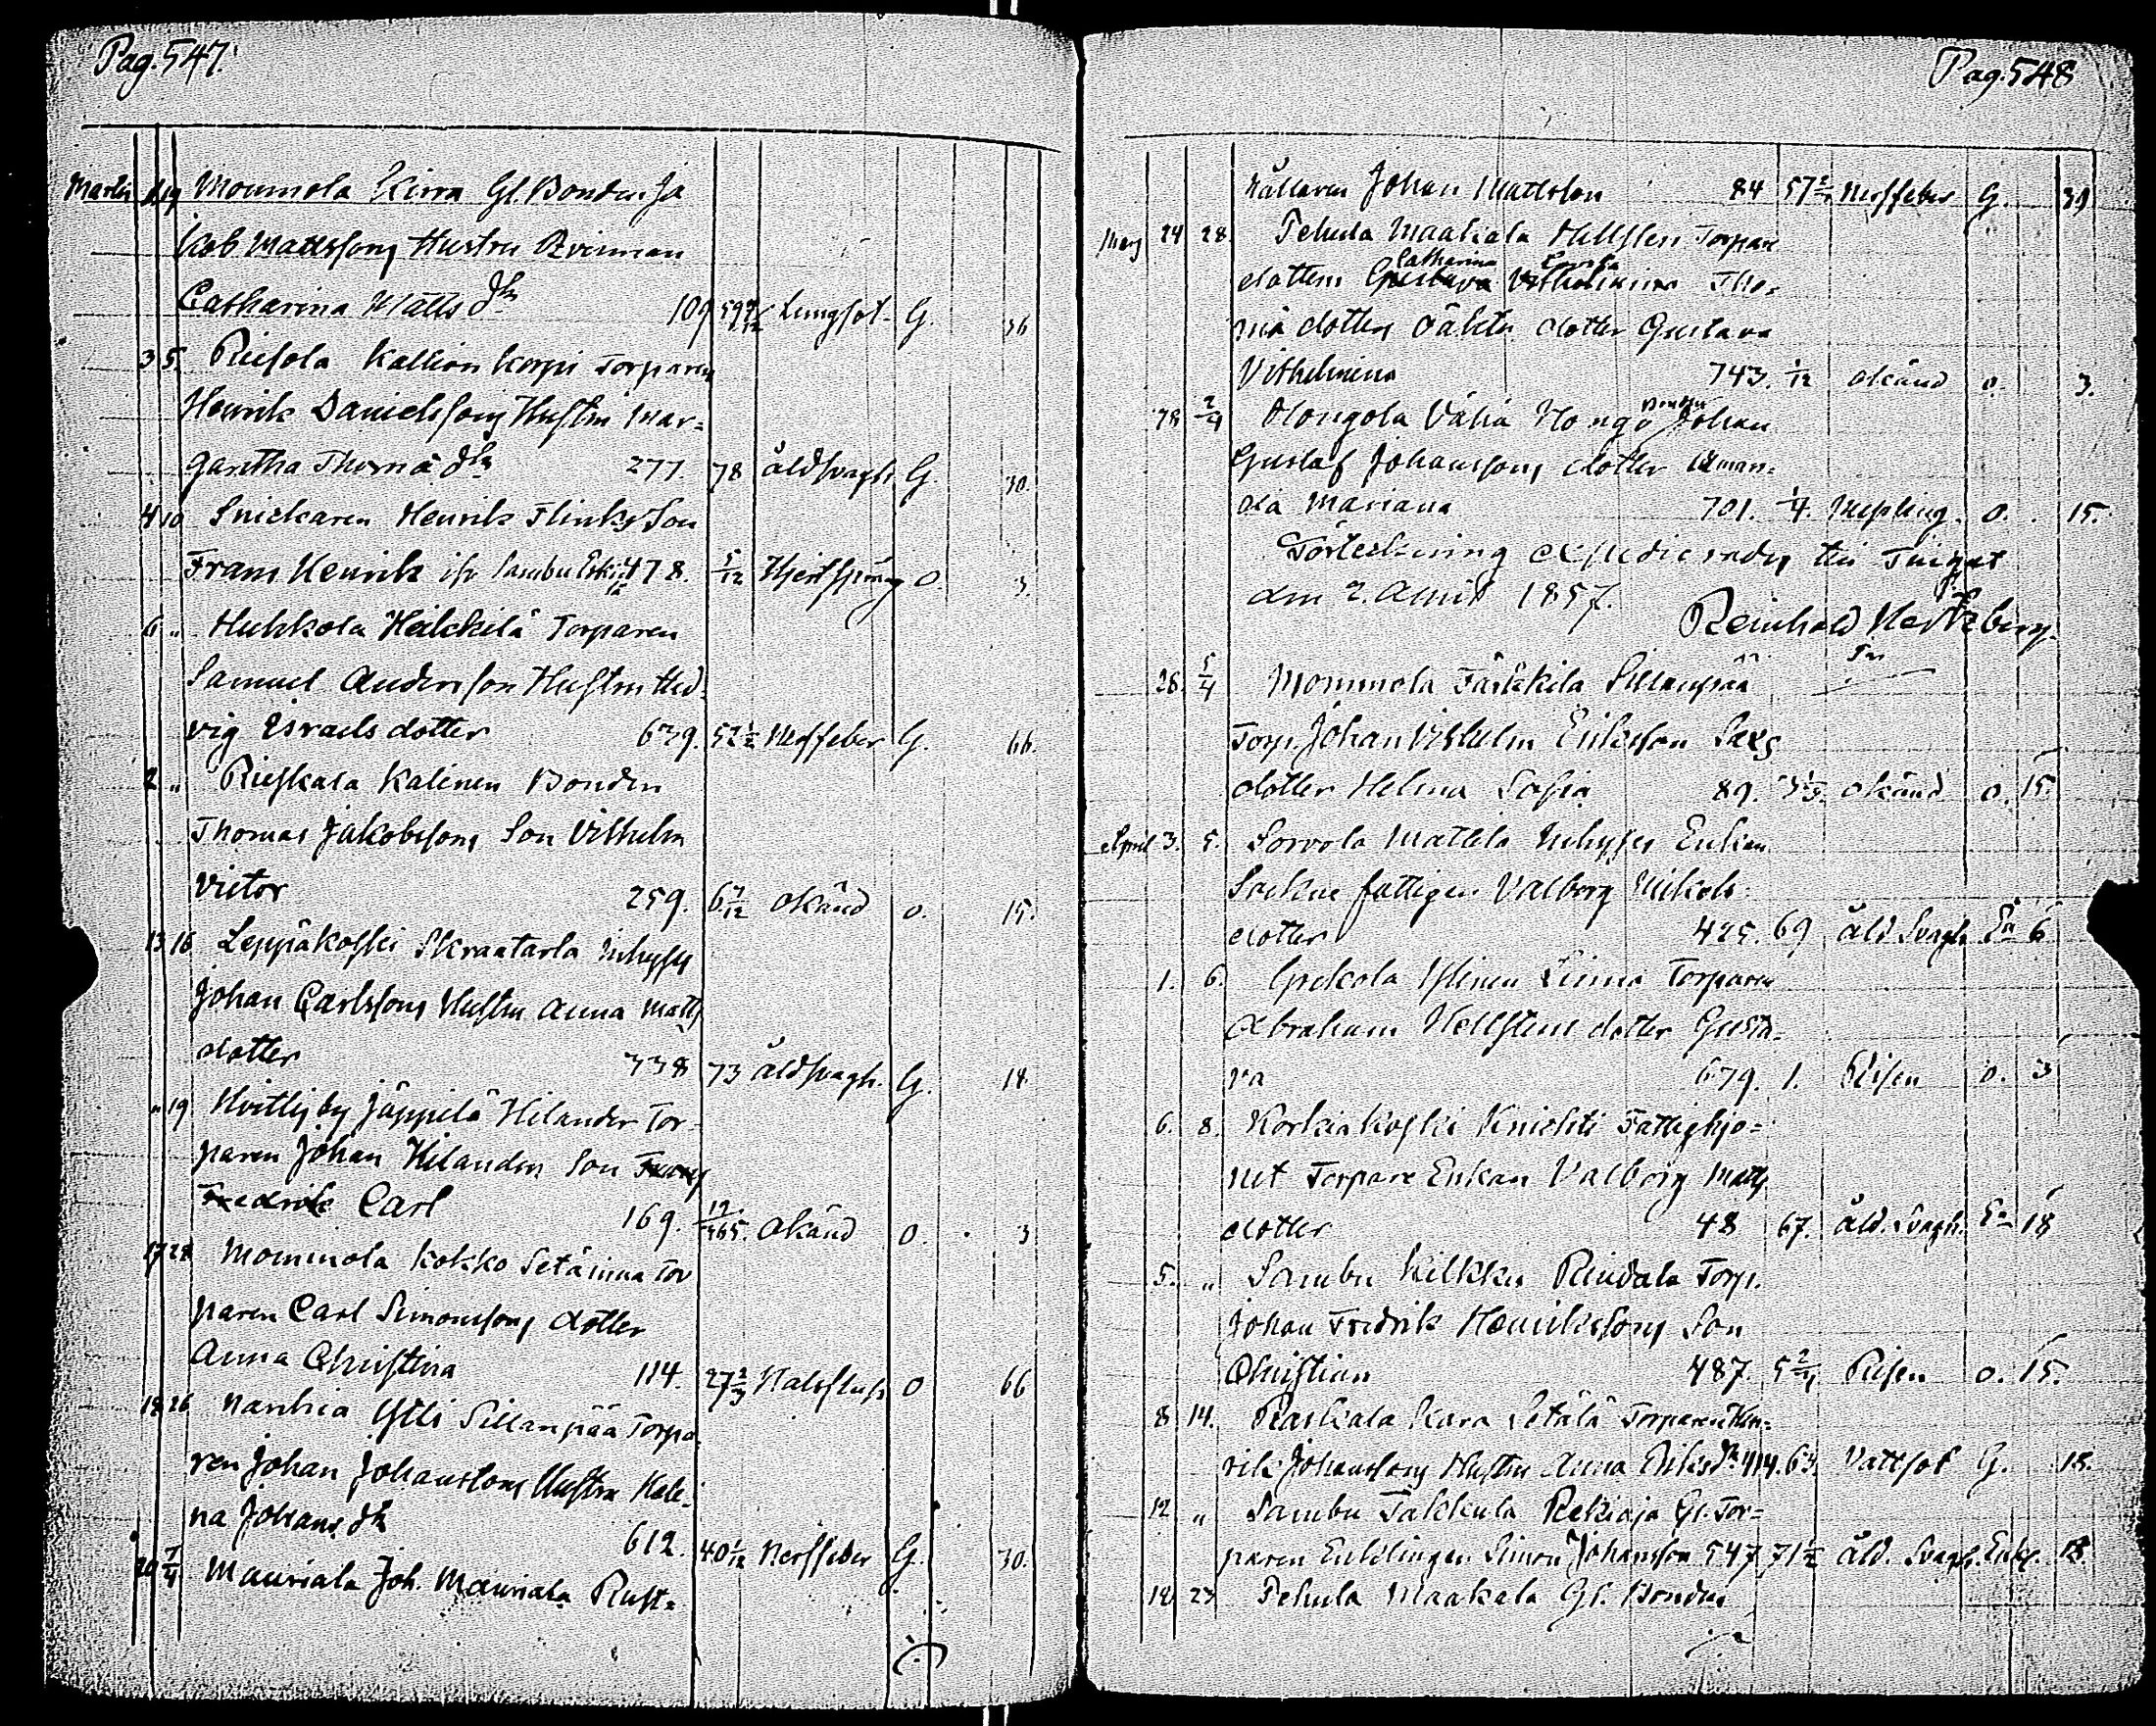 Pag. 547.
Martii 19 Mommola Kirra Gl. Bonden Ja
kob Mattssons Hustru Qvinnan
Catharina Matts dr 109 59 Lungsot G. 36
3 5. Ruisola Kallion korpi Torparen
Henrik Danielssons Hustru Mar=
garetha Thomæ dr 277. 78 åldsvagh. G. 30.
4 10 Snickaren Henrik Flinks Son
Frans Henrik 478. 5/12 Hjertsprång O. 3.
6 " Hukkola Heikkilä Torparen
Samuel Anderssons Hustru Hed=
vig Esraels dotter 639. 52 1/2 Nerffeber G. 66.
2 " Rieskala Kalinen Bonden
Thomas Jakobssons Son Vilhelm
Victor 259. 6 7/12 okänd o. 15.
13 16 Leppäkoski Skraatarla Inhyses
Johan Carlssons Hustru Anna Matts
dotter 338 73 åldsvagh. G. 18
" 19 Hvittisby Jäppilä Hilander Tor=
paren Johan Hilanders Son
Fredrik Carl 169. 12/365. okänd O. 3
17 28 Mommola Kokko Setäinna Tor
paren Carl Simonssons dotter
Anna Christina 114. 27 2/3 Halsfluss O 66
18 26 Nanhia Ylli Sillanpää Torpa=
ren Johan Johanssons Hustru Hele=
na Johans dr 612. 40 1/12 Nerffeber G. 30.
20 7/4 Mauriala Joh. Mauriala Rust=
Pag. 548
hållaren Johan Mattsson 84 57 Nerffeber G. 39
Marz 24 28. Pehula Maakala Hellsten Torpare
Catharina Lovisa
dottern Gustava Vilhelmina Tho=
mæ dotters oäkta dotter Gustava
Vilhelmina 743. 1/12 okänd o. 3.
28 2/4 Hongola Vähä Hongo Bonden Johan
Gustaf Johanssons dotter Aman=
da Mariana 701. 1/4. Messling. o. 15.
Förteckning expedierades till Tinget
den 2. April 1857.
Reinhold Hertzberg.
26. 5/4 Mommola Färkkila Sillanpää
Torp. Johan Vilhelm Eriksson Saxs
dotter Helena Sofia 89. okänd o. 15.
April 3. 5. Sorvola Mattila Inhyses Enkan
Sockne fattigen Valborg Mickels
dotter 425. 69 åld Svagh. En 6
1. 6. Torparen
Abraham Hellstens dotter Gusta=
va 679. 1. Risen o. 3
6. 8. Korkiakoski Knichti Fattighjo=
net Torpare Enkan Valborg Matts
dotter 48 67. åld. Svagh. En 18
5. " Sambu Kilkku Rindala Torp.
Johan Fredrik Henrikssons Son
Christian 487. 5 Risen o. 15.
8 14. Raskala Kara Setälä Torparen Hen=
rik Johanssons Hustru Anna Eriks dr 414. 63. Vattsot G. 18.
12 " Sambu Takkula Rekioja Gl. Tor=
paren Enklingen Simon Johansson 547 71 1/2 åld. Svagh. Enkl. 18
18 23 Pehula Maakala Gl. Bonden